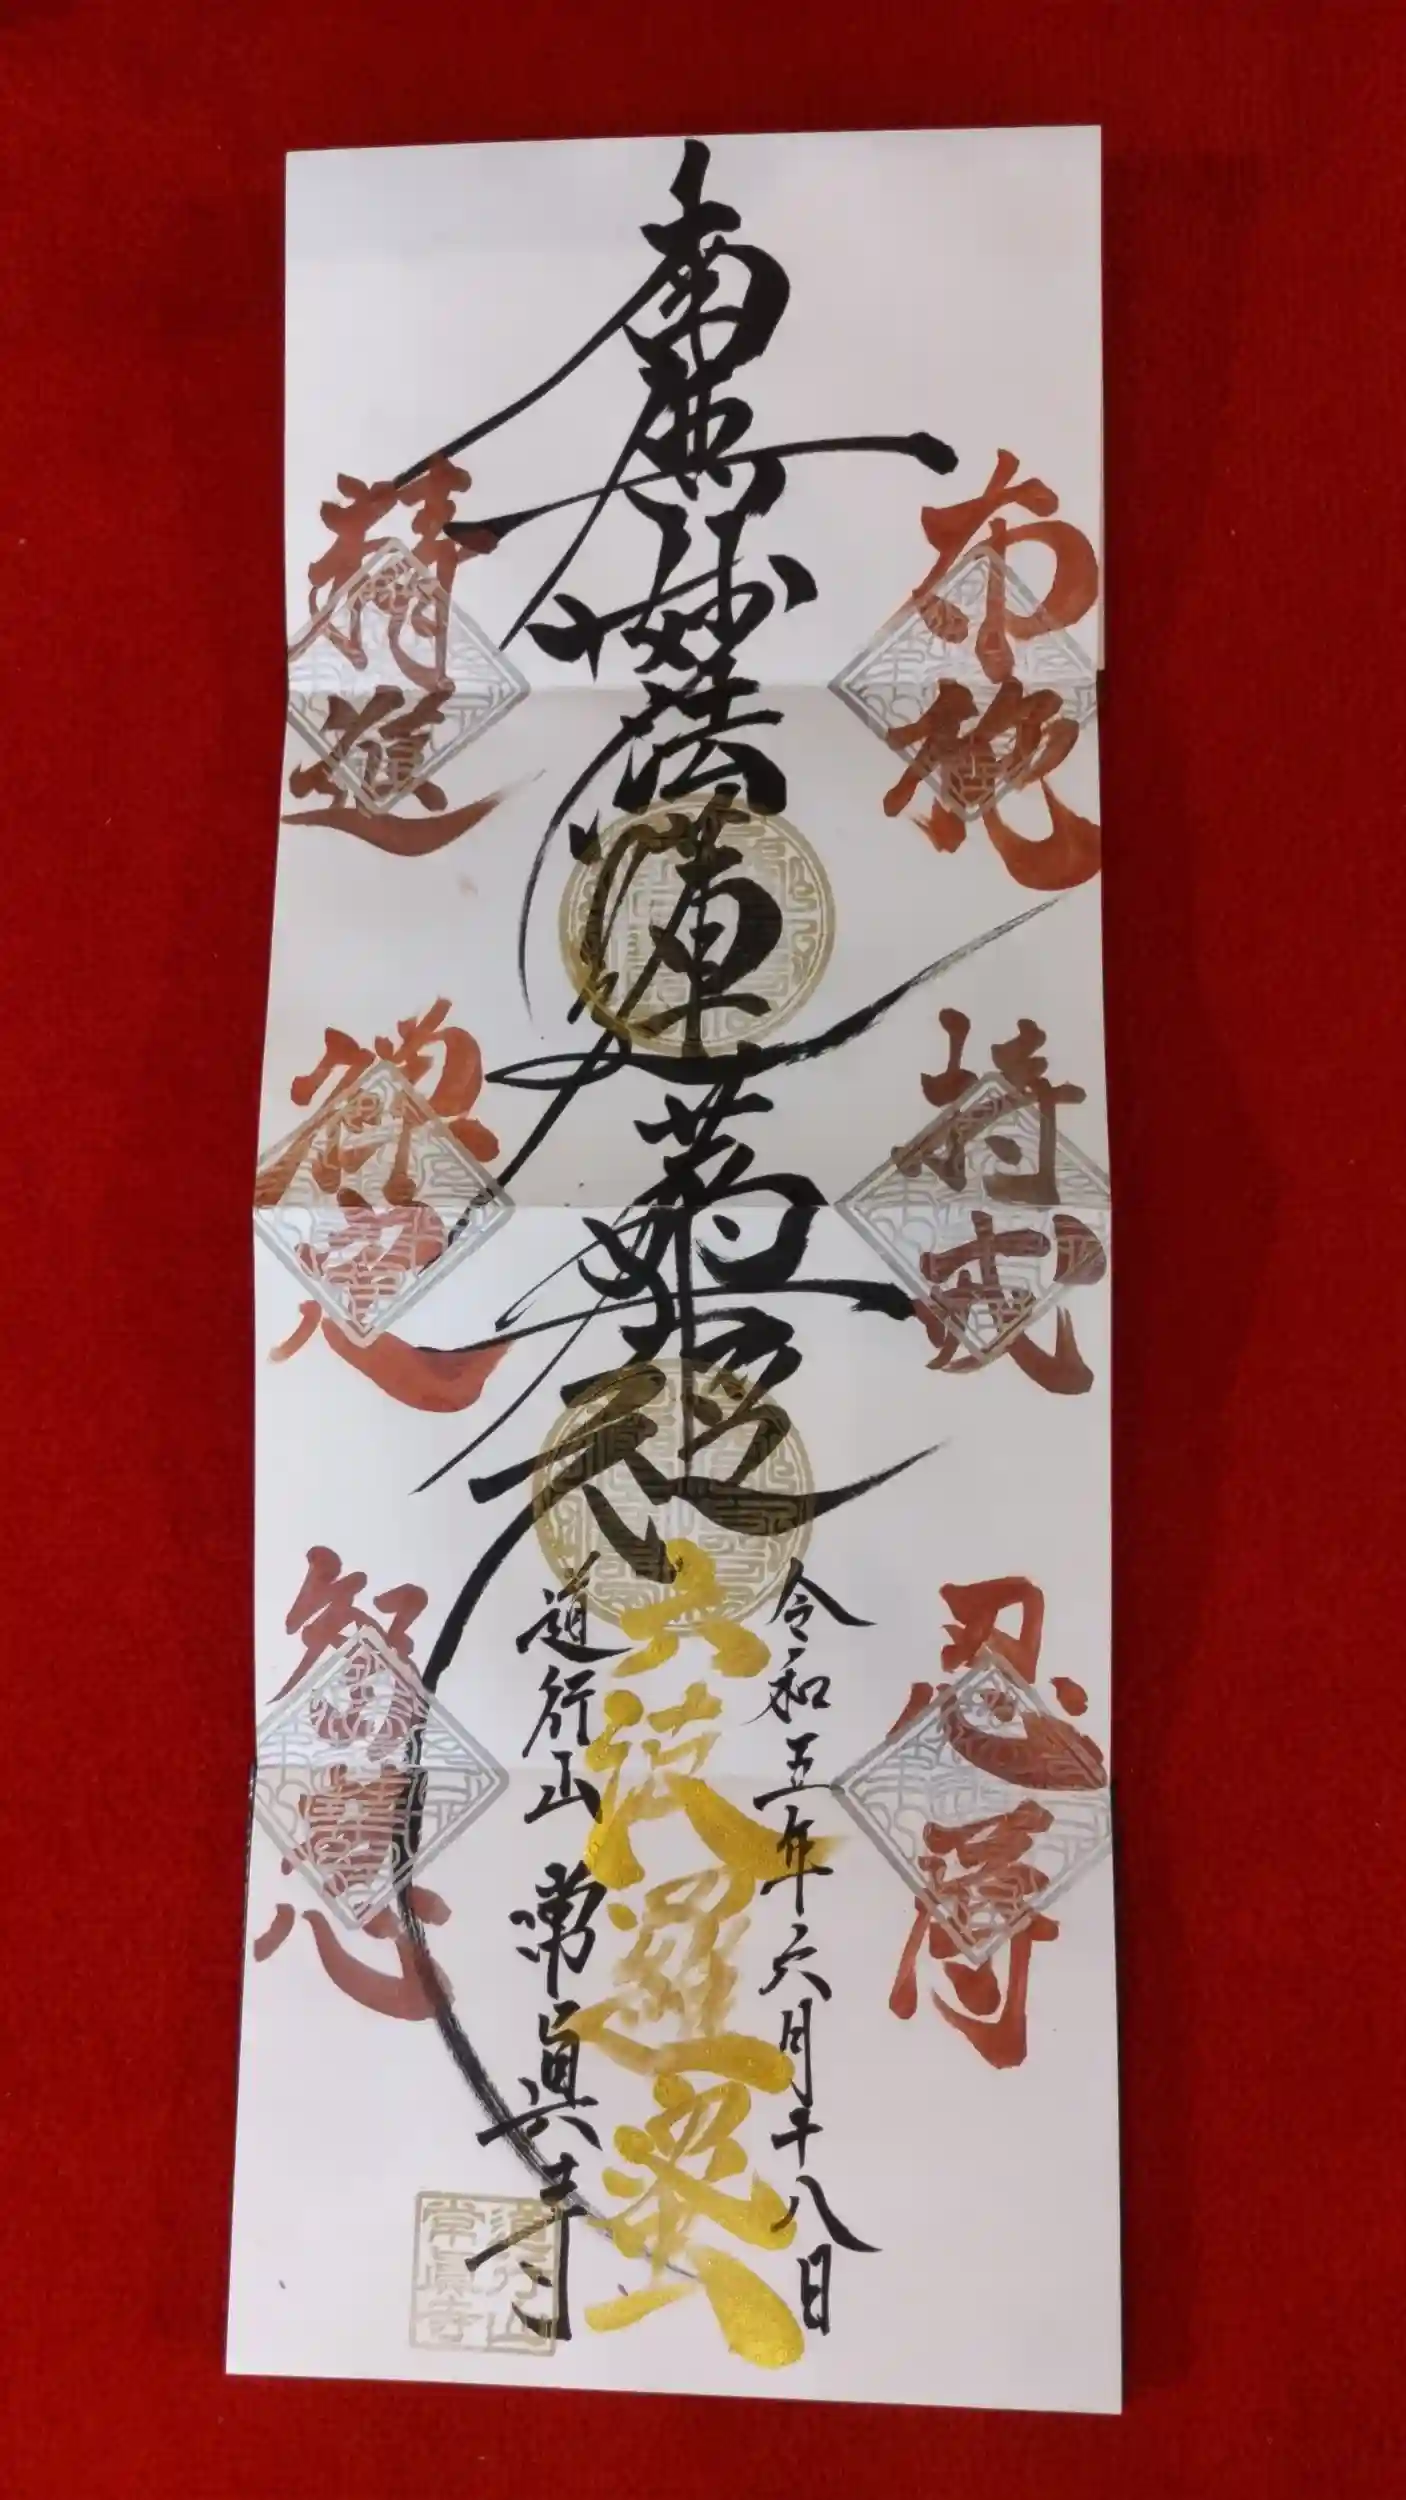 布施
持戒
忍辱
南無妙法蓮華経
令和五年六月十八日
六波羅蜜
道行山 常眞寺
精進
禅定
智慧
道行山
常眞寺